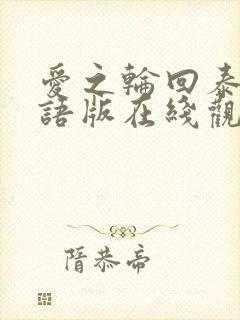 愛之輪回泰
語版在綫觀
隋恭帝